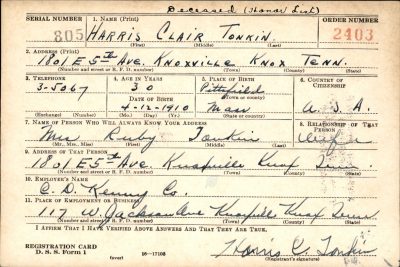 Deceased (Honor List)
SERIAL NUMBER 1. NAME (Print) ORDER NUMBER
805 HARRIS CLAIR TONKIN 2403
(First) (Middle) (Last)
2. ADDRESS (Print)
1801 E 5th Ave. KNOXVILLE KNOX TENN.
(Number and street or R. F. D. number) (Town) (County) (State)
3. TELEPHONE 4. AGE IN YEARS 5. PLACE OF BIRTH 6. COUNTRY OF CITIZENSHIP
3-5067 30 Pittsfield
DATE OF BIRTH (Town or county)
4-12-1910 Mass U.S.A.
(Exchange) (Number) (Mo.) (Day) (Yr.) (State or country)
7. NAME OF PERSON WHO WILL ALWAYS KNOW YOUR ADDRESS 8. RELATIONSHIP OF THAT PERSON
Mrs. Ruby Tonkin Wife
(Mr., Mrs., Miss) (First) (Middle) (Last)
9. ADDRESS OF THAT PERSON
1801 E 5th Ave. Knoxville Knox Tenn
(Number and street or R. F. D. number) (Town) (County) (State)
10. EMPLOYER'S NAME
C. D. Kenny Co.
11. PLACE OF EMPLOYMENT OR BUSINESS
117 W. Jackson Ave Knoxville Knox Tenn.
(Number and street or R. F. D. number) (Town) (County) (State)
I AFFIRM THAT I HAVE VERIFIED ABOVE ANSWERS AND THAT THEY ARE TRUE.
REGISTRATION CARD
D. S. S. Form 1 16—17105 Harris C. Tonkin
(Registrant's signature)